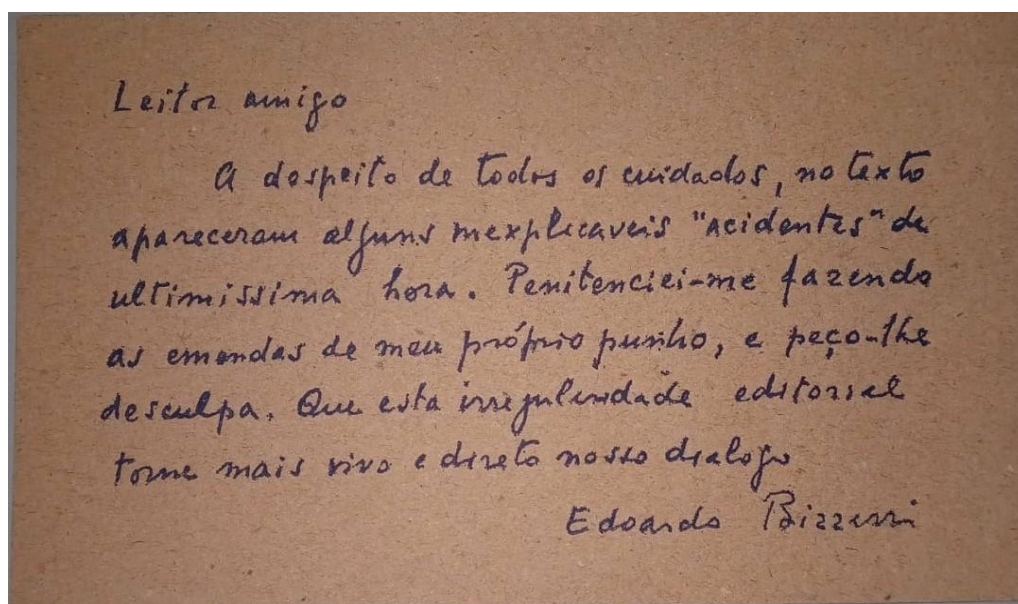 Leitor amigo
A despeito de todos os cuidados, no texto
apareceram alguns inexplicaveis "acidentes" de
ultimissima hora. Penitenciei-me fazendo
as emendas de meu próprio punho, e peço-lhe
desculpa. Que esta irregularidade editorial
torne mais vivo e direto nosso dialogo
Edoardo Bizzarri